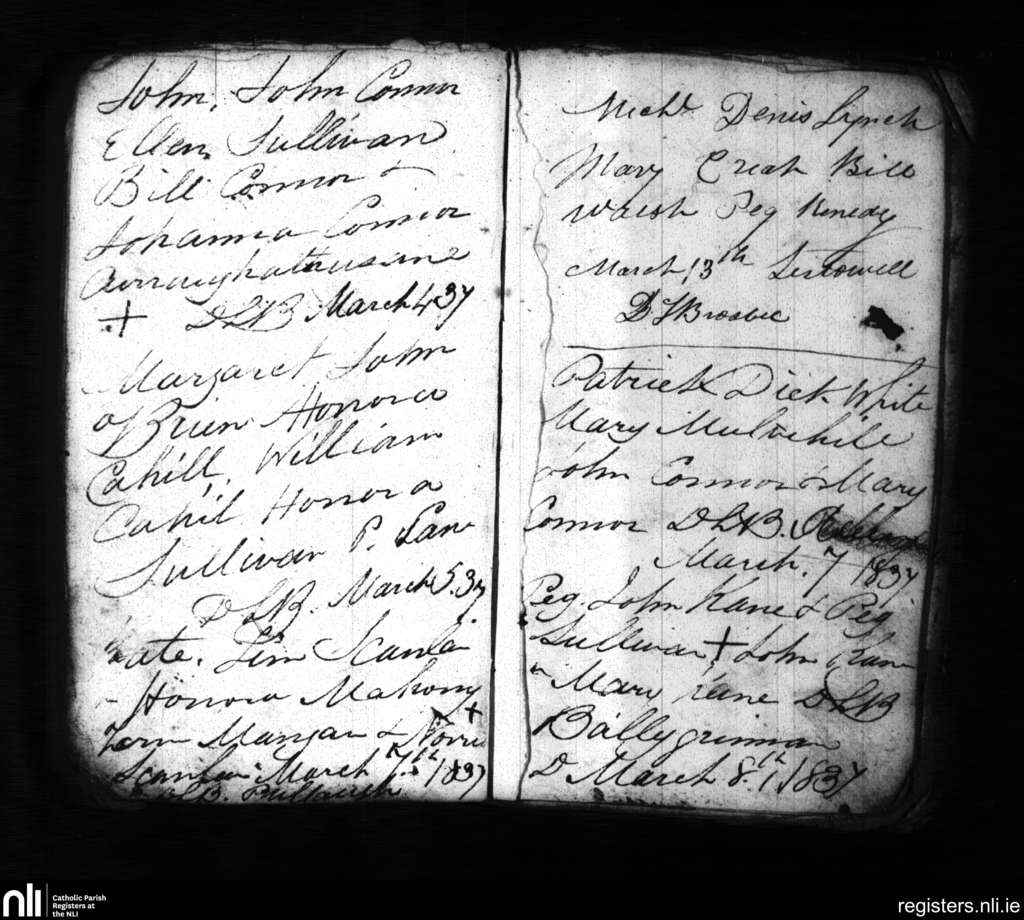 John, John Connor
Ellen Sullivan
Bill Connor &
Johanna Connor
+ DLB March 4. 37
Margaret John
o Brien Honora
Cahill, William
Cahil Honora
Sullivan P. Lane
DLB. March 5. 37
Kate. Tim Scanla
- Honora Mahony
Tom Mangan &
Scanlan March 7th 1837
Michl Denis Lynch
Mary Creah Bill
Walsh Peg Kenedy
March 13th Listowell
D L Brosbie
Patrick Dick White
Mary Mulvihill
John Connor & Mary
Connor DLB.
March. 7 1837
Peg. John Kane & Peg
Sullivan + John Kane
Mary Kane DLB
Ballygrinnan
D March 8th 1837
nli
Catholic Parish
Registers at
the NLI
registers.nli.ie